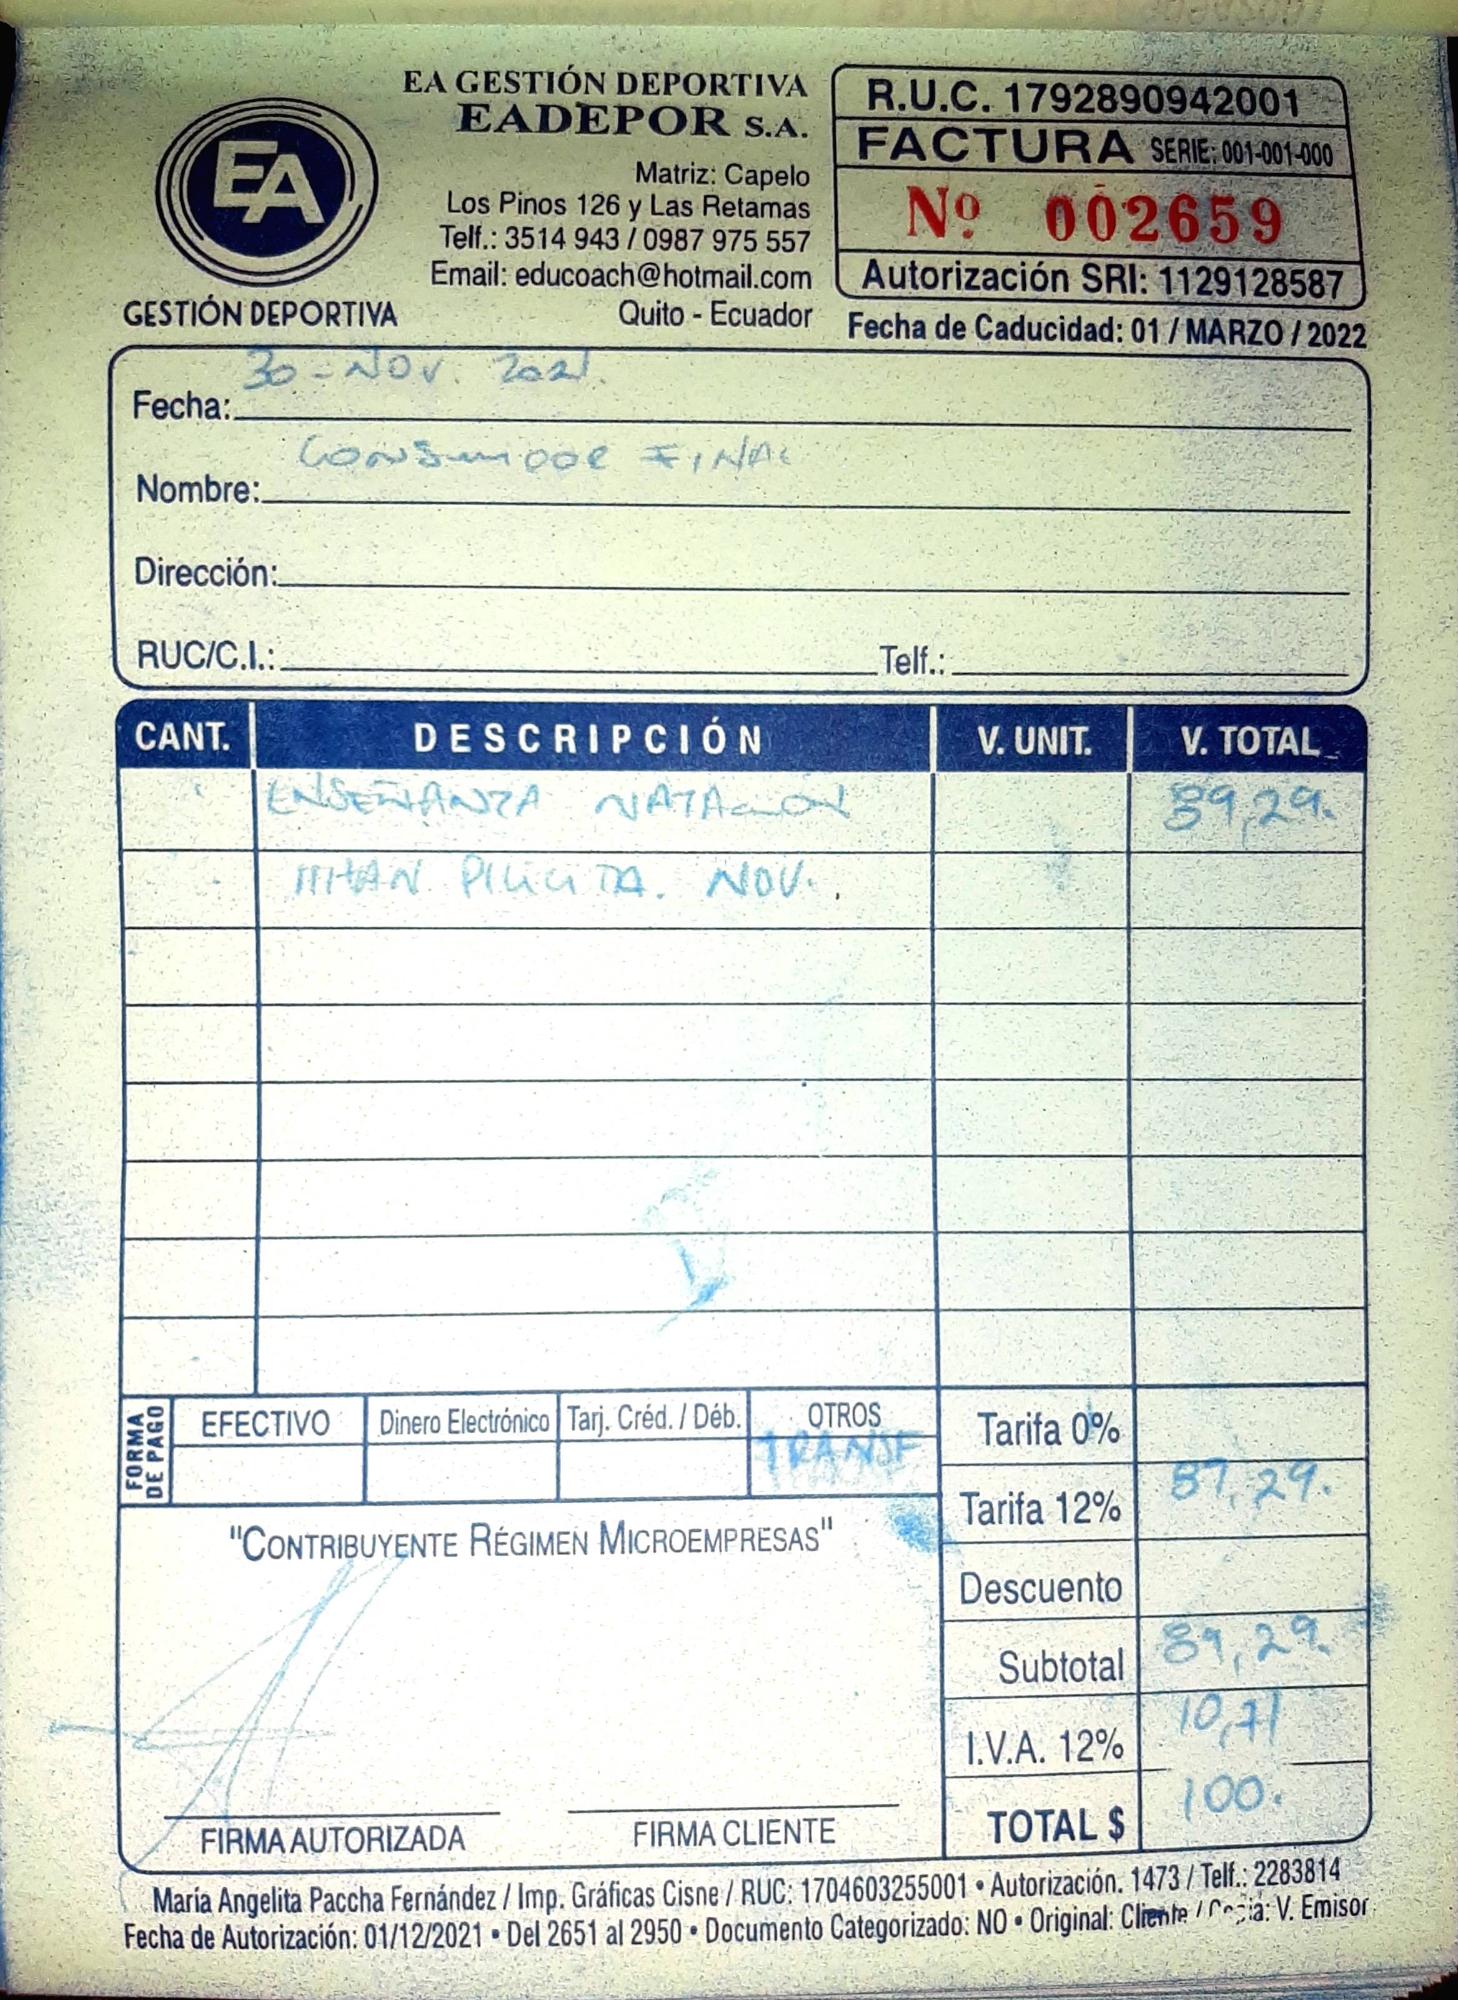 EA GESTIÓN DEPORTIVA
EADEPOR S.A.
Matriz: Capelo
Los Pinos 126 y Las Retamas
Telf.: 3514 943 / 0987 975 557
Email: educoach@hotmail.com
Quito - Ecuador
EA
GESTIÓN DEPORTIVA
R.U.C. 1792890942001
FACTURA SERIE: 001-001-000
Nº 002659
Autorización SRI: 1129128587
Fecha de Caducidad: 01 / MARZO / 2022
Fecha: 30 - NOV. 2021.
Nombre: CONSUMIDOR FINAL
Dirección:
RUC/C.I.: Telf.:
CANT. DESCRIPCIÓN V. UNIT. V. TOTAL
ENSEÑANZA NATACIÓN 89,29.
NOV.
FORMA DE PAGO
EFECTIVO Dinero Electrónico Tarj. Créd. / Déb. OTROS
TRANSF
Tarifa 0%
Tarifa 12% 89,29.
Descuento
Subtotal 89,29.
I.V.A. 12% 10,71
TOTAL $ 100.
"CONTRIBUYENTE RÉGIMEN MICROEMPRESAS"
FIRMA AUTORIZADA FIRMA CLIENTE
María Angelita Paccha Fernández / Imp. Gráficas Cisne / RUC: 1704603255001 • Autorización. 1473 / Telf.: 2283814
Fecha de Autorización: 01/12/2021 • Del 2651 al 2950 • Documento Categorizado: NO • Original: Cliente / Copia: V. Emisor